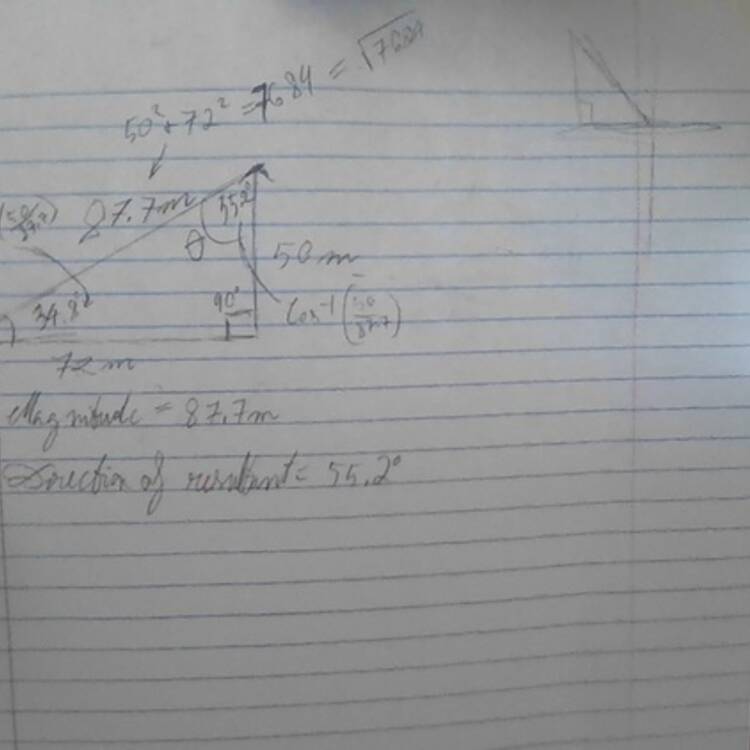 50² + 72² = 7684 = √7684
87.7m
55.2°
θ
50 m
34.8°
90°
Cos⁻¹(50/87.7)
72 m
Magnitude = 87.7m
Direction of resultant = 55.2°